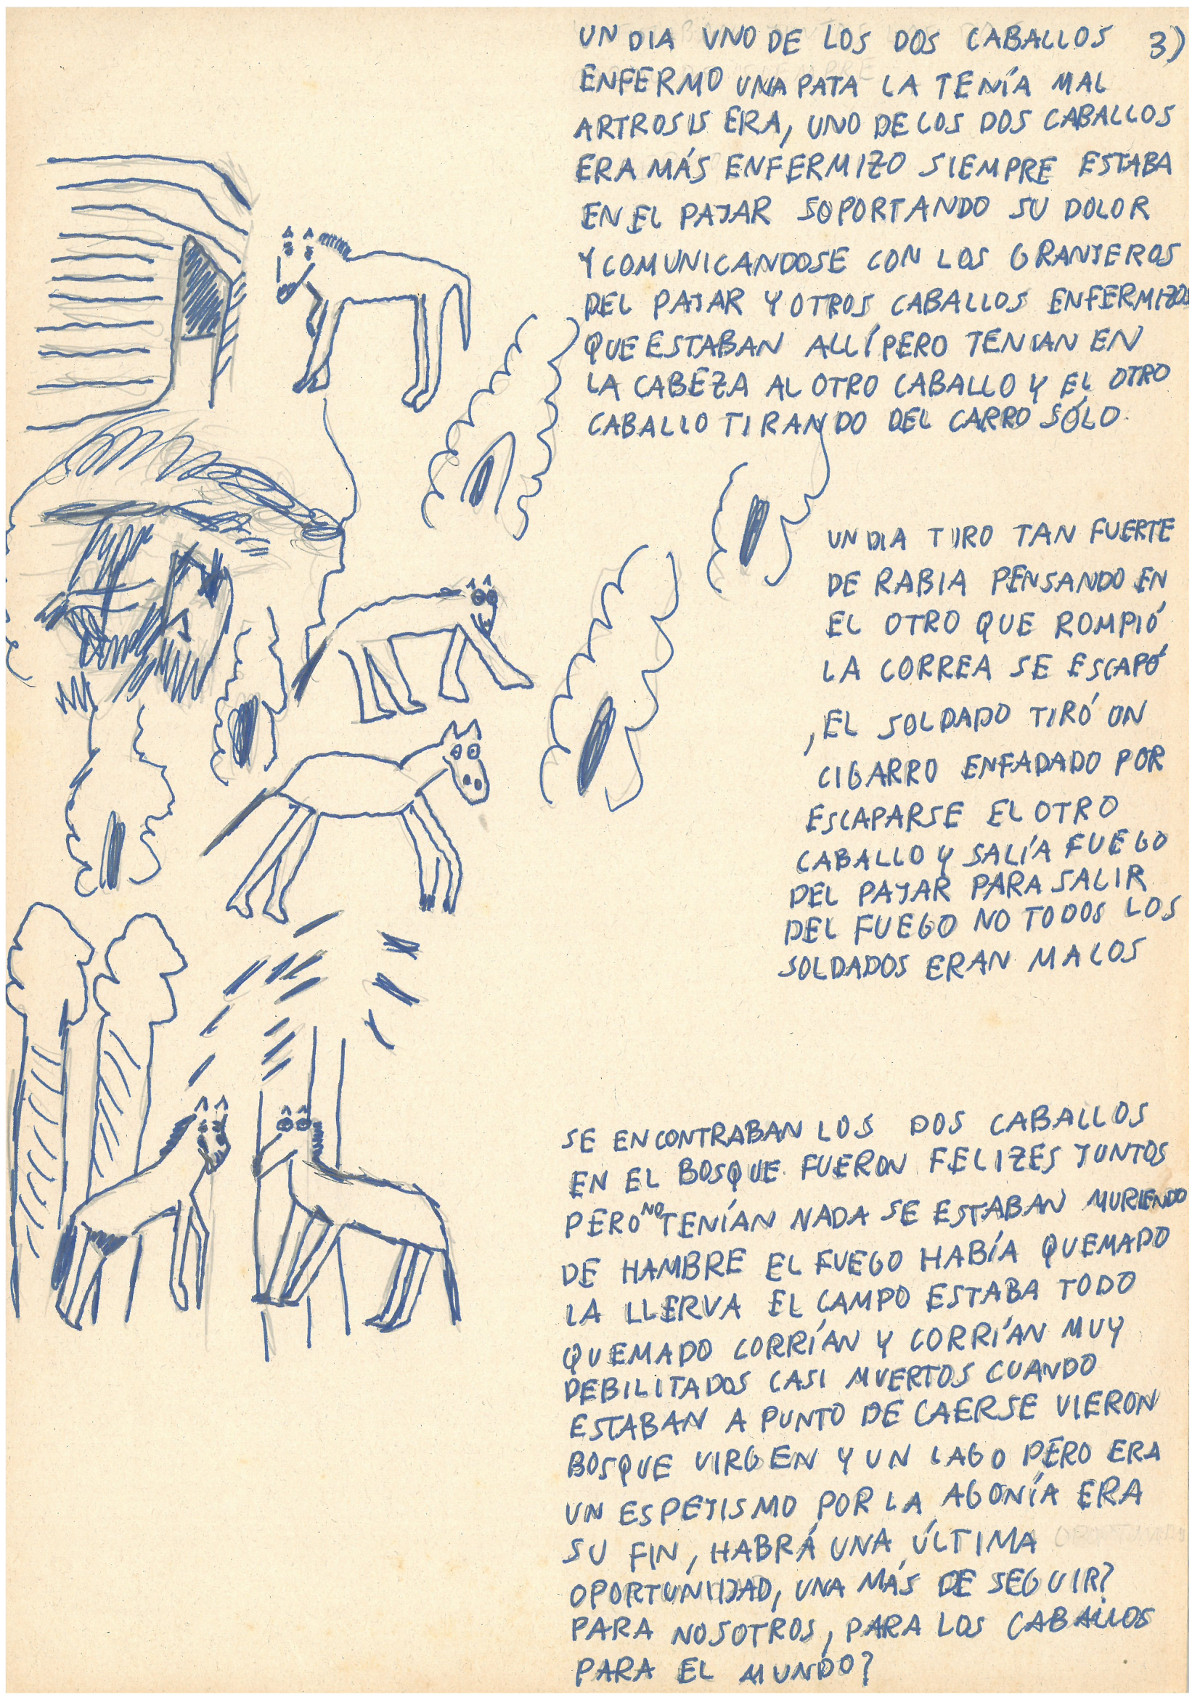 UN DIA UNO DE LOS DOS CABALLOS 3)
ENFERMO UNA PATA LA TENÍA MAL
ARTROSIS ERA, UNO DE LOS DOS CABALLOS
ERA MÁS ENFERMIZO SIEMPRE ESTABA
EN EL PAJAR SOPORTANDO SU DOLOR
Y COMUNICANDOSE CON LOS GRANJEROS
DEL PAJAR Y OTROS CABALLOS ENFERMIZOS
QUE ESTABAN ALLÍ PERO TENIAN EN
LA CABEZA AL OTRO CABALLO Y EL OTRO
CABALLO TIRANDO DEL CARRO SÓLO.
UN DIA TIRO TAN FUERTE
DE RABIA PENSANDO EN
EL OTRO QUE ROMPIÓ
LA CORREA SE ESCAPÓ
, EL SOLDADO TIRÓ UN
CIGARRO ENFADADO POR
ESCAPARSE EL OTRO
CABALLO Y SALÍA FUEGO
DEL PAJAR PARA SALIR
DEL FUEGO NO TODOS LOS
SOLDADOS ERAN MALOS
SE ENCONTRABAN LOS DOS CABALLOS
EN EL BOSQUE FUERON FELIZES JUNTOS
PERO NO TENÍAN NADA SE ESTABAN MURIENDO
DE HAMBRE EL FUEGO HABÍA QUEMADO
LA LLERVA EL CAMPO ESTABA TODO
QUEMADO CORRÍAN Y CORRÍAN MUY
DEBILITADOS CASI MUERTOS CUANDO
ESTABAN A PUNTO DE CAERSE VIERON
BOSQUE VIRGEN Y UN LAGO PERO ERA
UN ESPEJISMO POR LA AGONÍA ERA
SU FIN, HABRÁ UNA ÚLTIMA
OPORTUNIDAD, UNA MÁS DE SEGUIR?
PARA NOSOTROS, PARA LOS CABALLOS
PARA EL MUNDO?